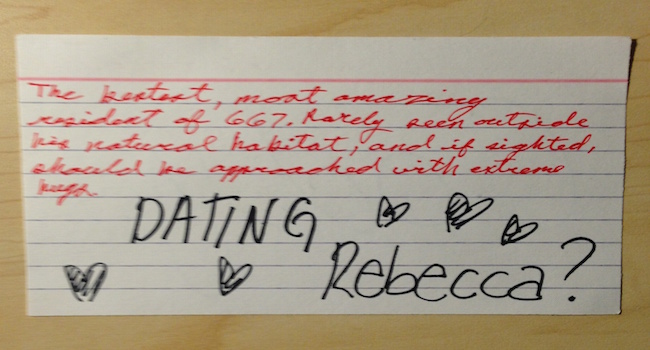 The bestest, most amazing
resident of 667. Rarely seen outside
his natural habitat, and if sighted,
should be approached with extreme
hugs.
DATING
Rebecca?